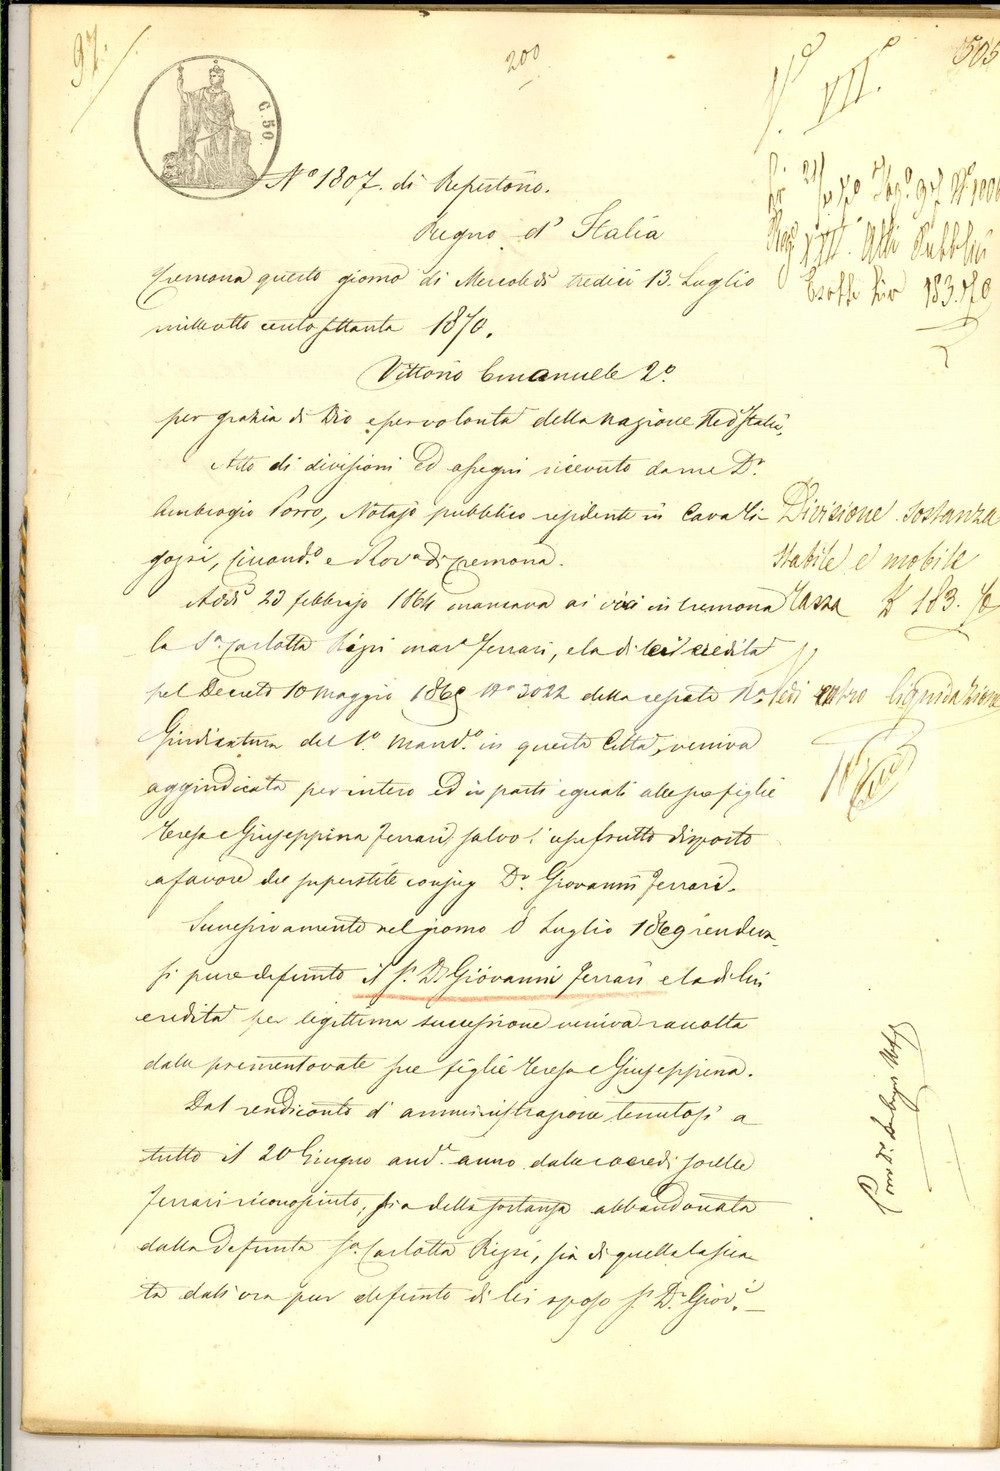 97.
200
N.º VII.º
505
C. 50.
Nº 1807. di Repertorio.
Regno d'Italia
Cremona questo giorno di Mercoledì tredici 13. Luglio
milleottocentosettanta 1870.
Vittorio Emanuele 2º
per grazia di Dio e per volontà della Nazione Re d'Italia,
Atto di divisioni ed assegni ricevuto da me Dr.
Ambrogio Porro, Notajo pubblico residente in Cavati-
gozzi, e Prova di Cremona.
Addì 23 febbrajo 1864 mancava ai vivi in Cremona
la Sa. Carlotta mara Ferrari, e la di lei eredità
pel Decreto 10 Maggio Nº 3022 della cessata Ra.
Giudicatura del 1º Mando in questa Città, veniva
aggiudicata per intero ed in parti eguali alle sue figlie
Teresa e Giuseppina Ferrari, salvo l'usufrutto disposto
a favore del superstite conjuge Dr. Giovanni Ferrari.
Successivamente nel giorno 8 Luglio 1869 rendeva-
si pure defunto il Sr. Dr. Giovanni Ferrari e la di lui
eredità per legittima successione veniva raccolta
dalle prementovate sue figlie Teresa e Giuseppina.
Dal rendiconto d'amministrazione tenutosi a
tutto il 20 Giugno and. anno dalle coeredi sorelle
Ferrari riconosciuto, sia della sostanza abbandonata
dalla defunta Sa. Carlotta, sia di quella lascia
ta dall'ora pur defunto di lei sposo Sr. Dr. Giov.i
21/ 70 Nº 1006
Atti Pubblici
Esatte Lir 183.70
Divisione sostanza
stabile e mobile
Tassa £ 183.70
Vedi entro liquidazione
Porro Dr. Ambrogio Not.